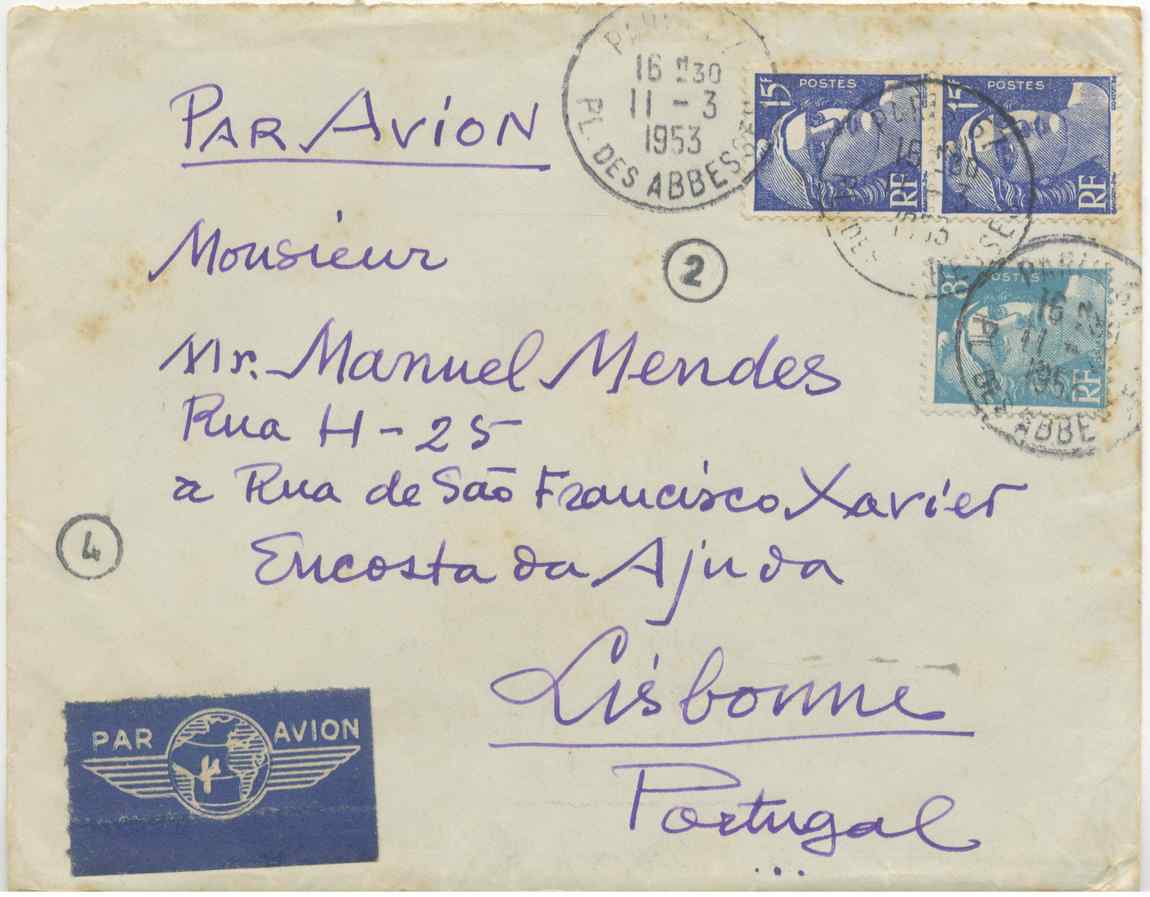 PAR AVION
16 H30
11 - 3
1953
PL. DES ABBESSES
15F POSTES RF
15F POSTES RF
Monsieur
2
8F POSTES RF
16
1953
DES ABBE
Mr. Manuel Mendes
Rua H - 25
a Rua de São Francisco Xavier
4
Encosta da Ajuda
Lisbonne
Portugal
...
PAR AVION